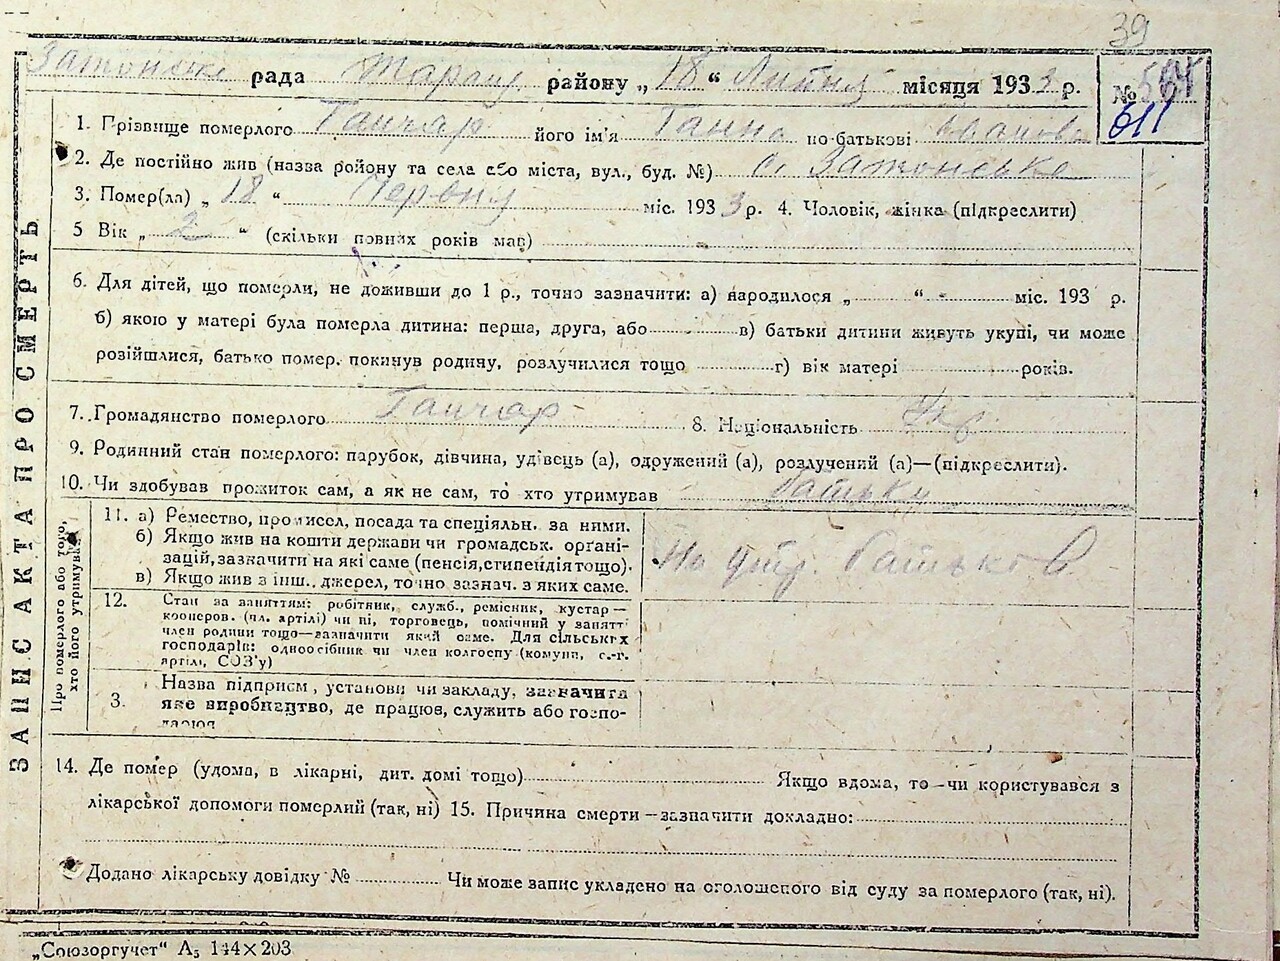 39
Затонське рада Таращ району „18“ Липня місяця 1933 р.
№
611
1. Прізвище померлого Ганчар його ім'я Ганна по-батькові Іванов
2. Де постійно жив (назва району та села або міста, вул., буд. №) с. Затонське
3. Помер(ла) „18“ Червня міс. 1933 р. 4. Чоловік, жінка (підкреслити)
5 Вік „2“ (скільки повних років мав)
6. Для дітей, що померли, не доживши до 1 р., точно зазначити: а) народилося „ “ міс. 193 р.
б) якою у матері була померла дитина: перша, друга, або в) батьки дитини живуть укупі, чи може
розійшлися, батько помер. покинув родину, розлучилися тощо г) вік матері років.
7. Громадянство померлого Ганчар 8. Національність Укр
9. Родинний стан померлого: парубок, дівчина, удівець (а), одружений (а), розлучений (а)—(підкреслити).
10. Чи здобував прожиток сам, а як не сам, то хто утримував батьки
ЗАПИС АКТА ПРО СМЕРТЬ
Про померлого або того, хто його утримував
11. а) Ремество, промисел, посада та спеціяльн. за ними.
б) Якщо жив на кошти держави чи громадськ. органі-
зацій, зазначити на які саме (пенсія, стипендія тощо).
в) Якщо жив з інш. джерел, точно зазнач. з яких саме.
На утр. батьков
12. Стан за заняттям: робітник, служб., ремісник, кустар—
кооперов. (чл. артілі) чи ні, торговець, помічний у занятті
член родини тощо—зазначити який саме. Для сільських
господарів: одноосібник чи член колгоспу (комуни, с.-г.
артілі, СОЗ'у)
3. Назва підприєм, установи чи закладу, зазначити
яке виробництво, де працює, служить або госпо-
14. Де помер (удома, в лікарні, дит. домі тощо) Якщо вдома, то—чи користувався з
лікарської допомоги померлий (так, ні) 15. Причина смерти—зазначити докладно:
Додано лікарську довідку № Чи може запис укладено на оголошеного від суду за померлого (так, ні).
„Союзоргучет“ А5 144×203